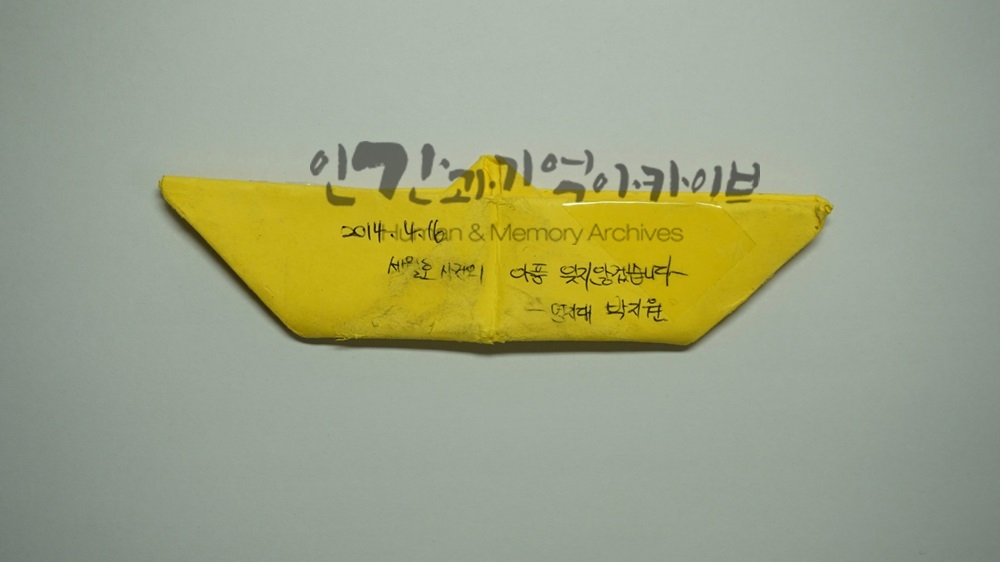 인간과기억아카이브
Human & Memory Archives
2014.4.16
세월호 사건의 아픔 잊지않겠습니다
박지원